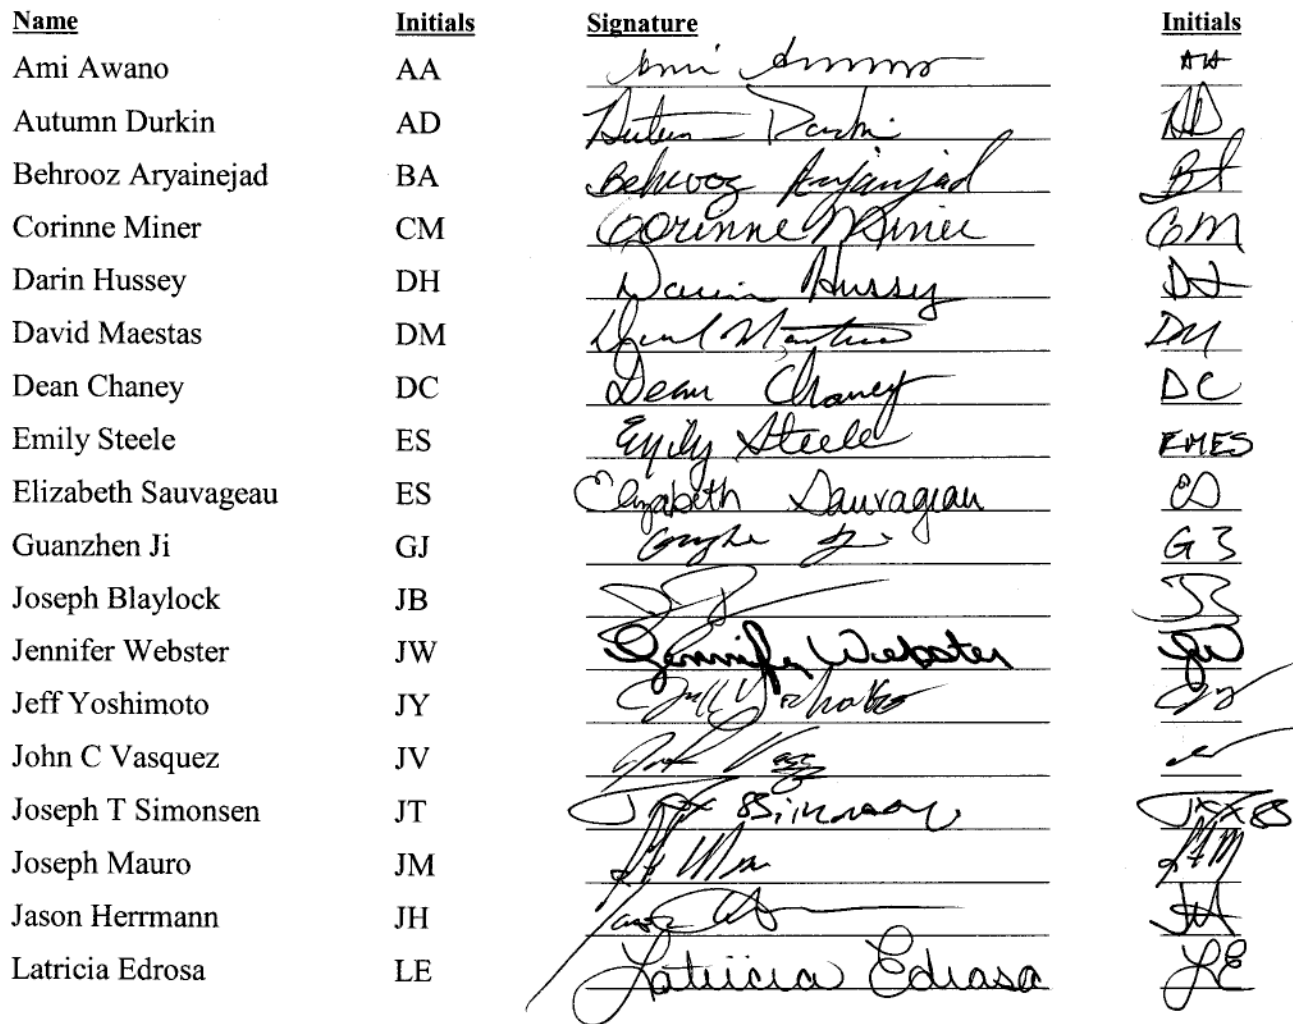 Name Initials Signature Initials
Ami Awano AA Ami AA
Autumn Durkin AD Autumn Durkin AD
Behrooz Aryainejad BA Behrooz Aryainejad BA
Corinne Miner CM Corinne Miner CM
Darin Hussey DH Darin Hussey DH
David Maestas DM David Maestas DM
Dean Chaney DC Dean Chaney DC
Emily Steele ES Emily Steele EMES
Elizabeth Sauvageau ES Elizabeth Sauvageau ES
Guanzhen Ji GJ GJ
Joseph Blaylock JB JB
Jennifer Webster JW Jennifer Webster JW
Jeff Yoshimoto JY Jeff Yoshimoto JY
John C Vasquez JV
Joseph T Simonsen JT Simonsen
Joseph Mauro JM
Jason Herrmann JH JH
Latricia Edrosa LE Latricia Edrosa LE